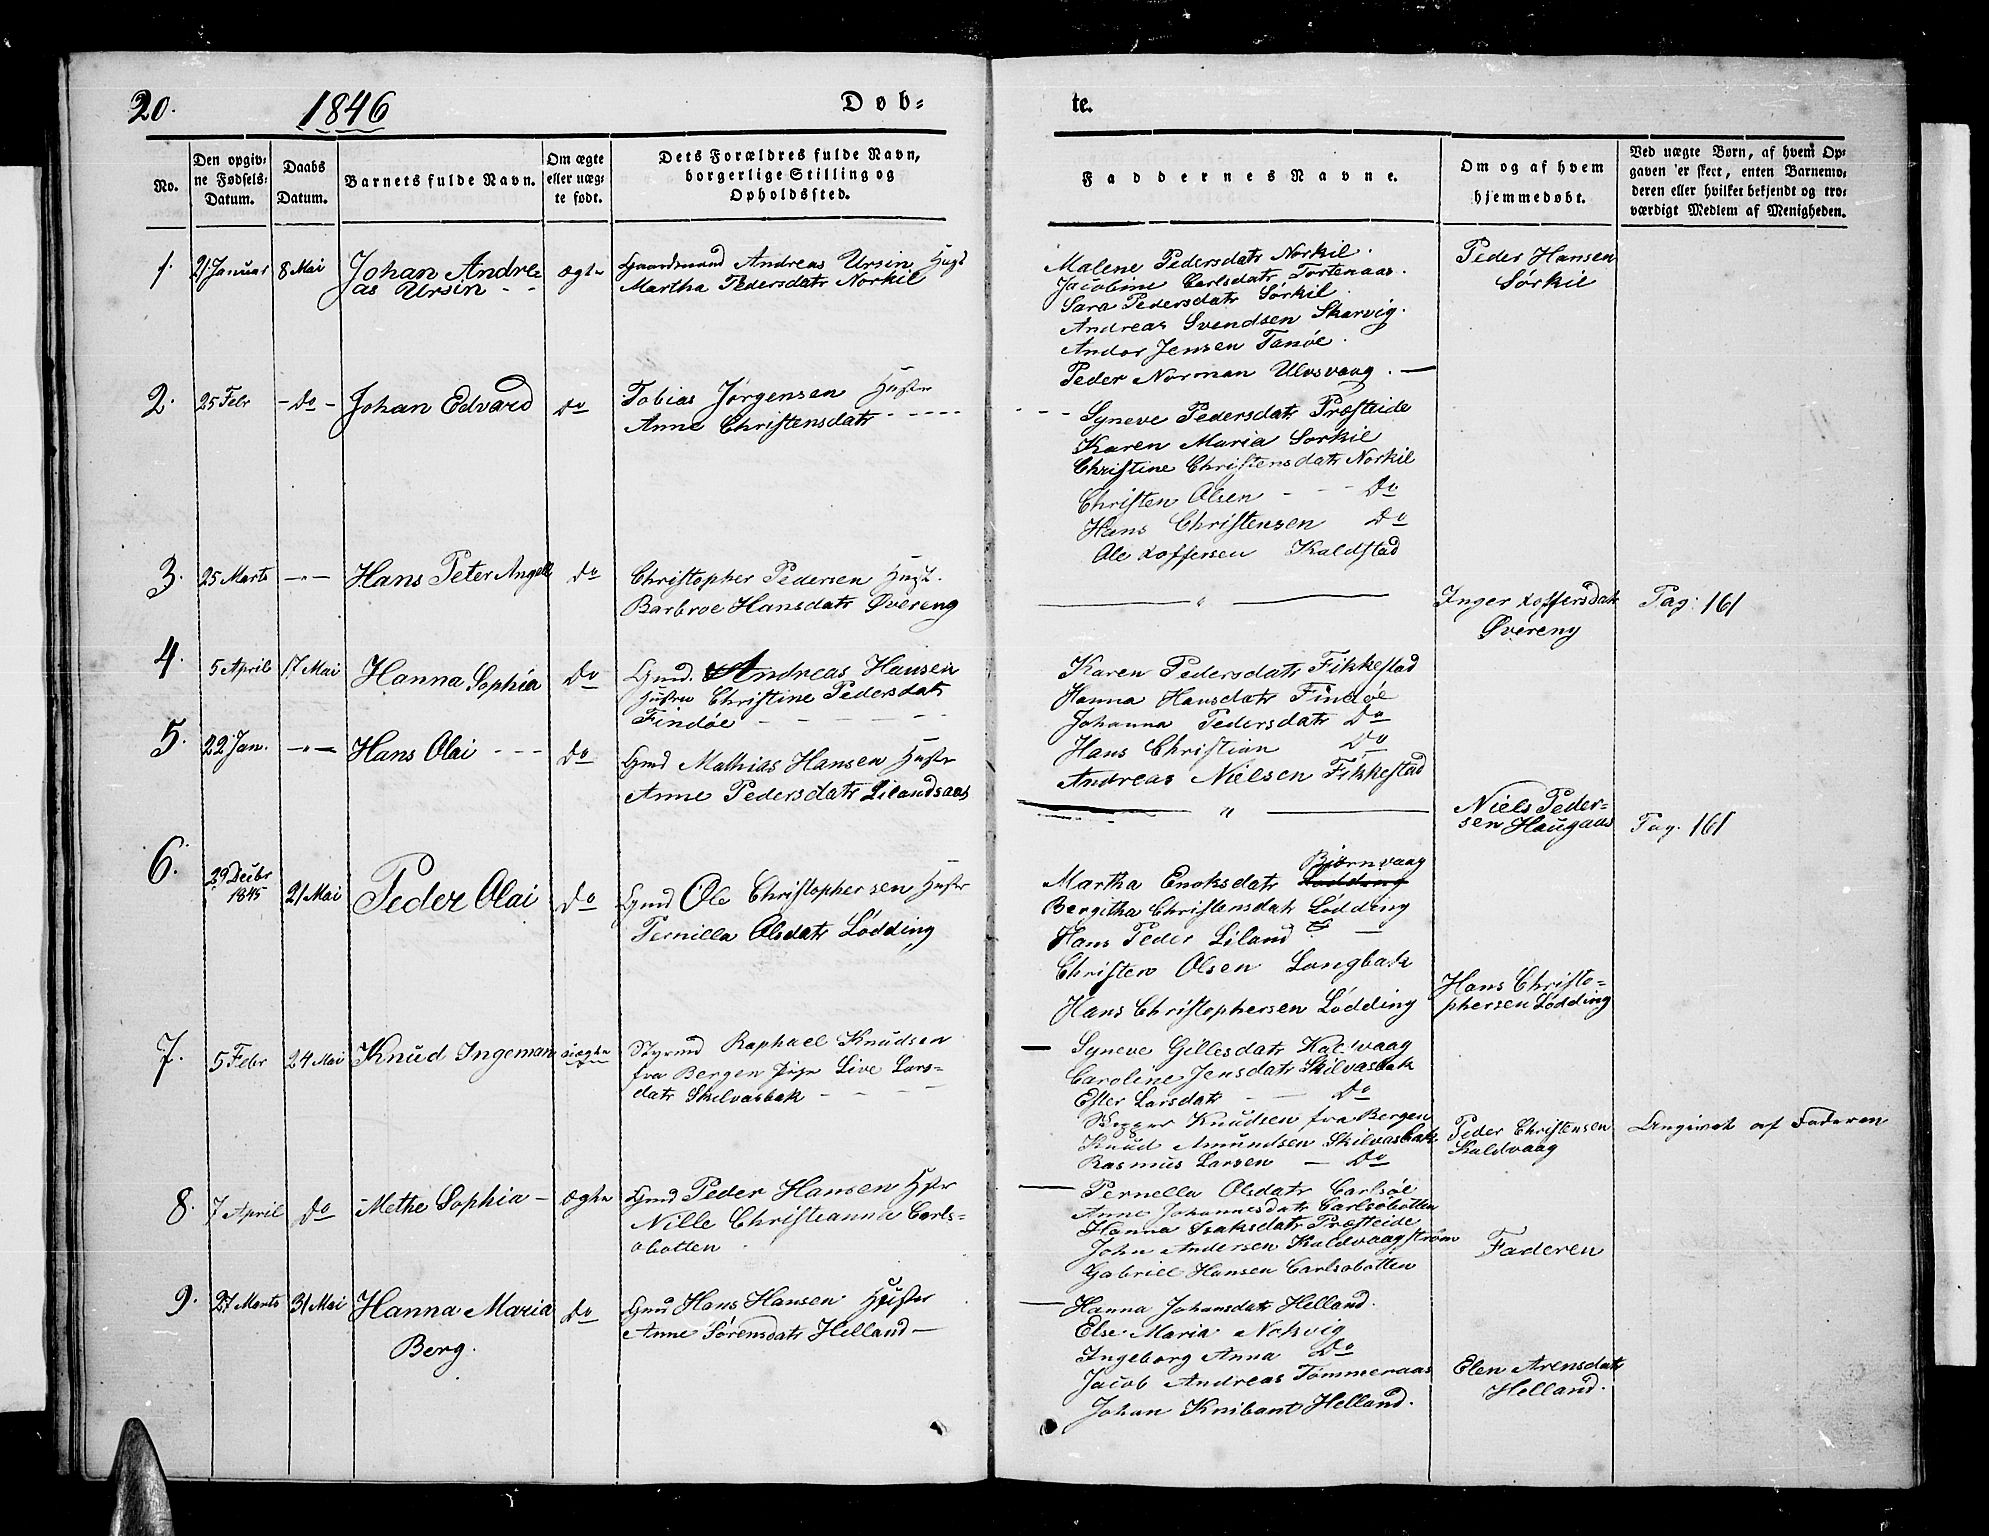 20.
1846
Dob=
te.
No.
Den opgiv=
ne Fødsels=
Datum.
Daabs
Datum.
Barnets fulde Navn.
Om ægte
eller uæg=
te født.
Dets Forældres fulde Navn,
borgerlige Stilling og
Opholdssted.
Faddernes Navne.
Om og af hvem
hjemmedøbt.
Ved uægte Børn, af hvem Op=
gaven er skeet, enten Barnemo=
deren eller hvilket bekjendt og tro=
værdigt Medlem af Menigheden.
1. 21 Januar 8 Mai Johan Andre=
as Ursin - -
ægte
Gaardmand Andreas Ursin Hust
Martha Pedersdatr Norkil
Malene Pedersdatr Norkil.
Jacobine Carlsdatr Tortenaas.
Sara Pedersdatr Sørkil.
Andreas Svendsen Skarvig.
Andor Jensen Tanøe.
Peder Norman Ulvsvaag. —
Peder Hansen
Sørkil
2. 25 Febr - Do - Johan Edvard Do
Tobias Jørgensen Hustr
Anne Christensdatr - - - - -
- - - Syneve Pedersdatr Præsteide
Karen Maria Sørkil
Christine Christensdatr Norkil
Christen Olsen - - - Do
Hans Christensen Do
Ole Xoffersen Kaldstad
3. 25 Marts —"— Hans Peter Angell Do
Christopher Pedersen Hust.
Barbroe Hansdatr Øvereng
— " —
Inger Xoffersdatr
Øvereng
Pag: 161
4. 5 April 17 Mai Hanna Sophia Do
Gmd. Andreas Hansen
Hustru Christine Pedersdatr
Findøe - - - -
Karen Pedersdatr Fikkestad
Hanna Hansdatr Findøe
Johanna Pedersdatr Do
Hans Christian Do
Andreas Nielsen Fikkestad
5. 22 Jan. —"— Hans Olai - - - Do
Gmd Mathias Hansen Hustr
Anne Pedersdatr Lilandsaas
— " —
Niels Peder-
sen Haugaas
Pag. 161
6. 29 Decbr
1845
21 Mai Peder Olai Do
Gmd Ole Christophersen Hustr
Pernilla Olsdatr Lødding
Bjørnvaag
Martha Enoksdatr Lødding
Bergitha Christensdatr Lødding
Hans Peder Liland —
Christen Olsen Langbak
Hans Christophersen Lødding
Hans Christo-
phersen Lødding
7. 5 Febr 24 Mai Knud Ingeman uægte
Styrmd Raphael Knudsen
fra Bergen Pige Live Lars-
datr Skilvasbak - - -
— Syneve Gillesdatr Kalvaag
Caroline Jensdatr Skilvasbak
Ester Larsdatr - - Do
Knudsen fra Bergen
Knud Amundsen Skilvasbak
Rasmus Larsen — Do
Peder Christensen
Kaldvaag
Angivet af Faderen
8. 7 April Do - Methe Sophia - ægte
Gmd Peder Hansen Hstr
Nille Christianna Carls-
obotten.
— Pernella Olsdatr Carlsøe
Anne Johannesdatr Carlsobotten
Hanna Isaksdatr Præsteide
John Andersen Kaldvaagstrøm
Gabriel Hansen Carlsobotten
Faderen
9. 27 Marts 31 Mai Hanna Maria
Berg.
Do
Gmd Hans Hansen Hustr
Anne Sørensdatr Helland —
— Hanna Johansdatr Helland.
Else Maria Nokvig
Ingeborg Anna Do
Jacob Andreas Tømmeraas
Johan Knibant Helland.
Elen Arensdatr
Helland.